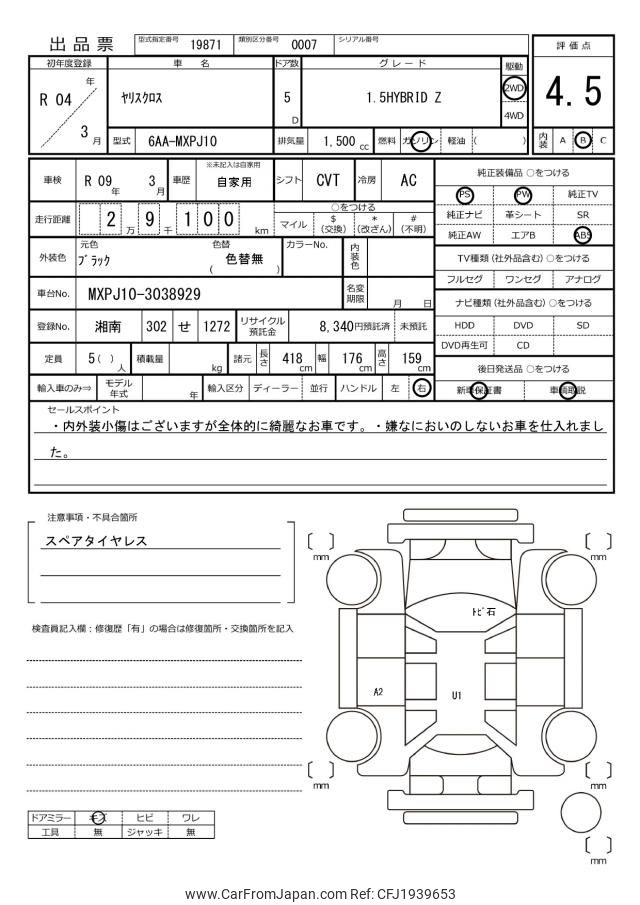 出品票 型式指定番号 19871 類別区分番号 0007 シリアル番号
評価点
4.5
内装 A B C
初年度登録 車名 ドア数 グレード 駆動
R 04 年 3 月
ヤリスクロス 5 D 1.5HYBRID Z 2WD
4WD
型式 6AA-MXPJ10 排気量 1,500 cc 燃料 ガソリン 軽油 ( )
車検 R 09 年 3 月 車歴 ※未記入は自家用 自家用 シフト CVT 冷房 AC
走行距離 2 万 9 千 1 0 0 km
○をつける
マイル $ (交換) * (改ざん) # (不明)
外装色 元色 ブラック 色替 ( 色替無 ) カラーNo. 内装色
車台No. MXPJ10-3038929 名変期限 月 日
登録No. 湘南 302 せ 1272 リサイクル預託金 8,340円預託済 未預託
定員 5( ) 人 積載量 kg 諸元 長さ 418 cm 幅 176 cm 高さ 159 cm
輸入車のみ⇒ モデル年式 年 輸入区分 ディーラー 並行 ハンドル 左 右
純正装備品 ○をつける
PS PW 純正TV
純正ナビ 革シート SR
純正AW エアB ABS
TV種類 (社外品含む) ○をつける
フルセグ ワンセグ アナログ
ナビ種類 (社外品含む) ○をつける
HDD DVD SD
DVD再生可 CD
後日発送品 ○をつける
新車保証書 車輌取説
セールスポイント
・内外装小傷はございますが全体的に綺麗なお車です。・嫌なにおいのしないお車を仕入れまし
た。
注意事項・不具合箇所
スペアタイヤレス
検査員記入欄：修復歴「有」の場合は修復箇所・交換箇所を記入
ドアミラー キズ ヒビ ワレ
工具 無 ジャッキ 無
mm
mm
ﾄﾋﾞ石
A2
U1
mm
mm
mm
www.CarFromJapan.com Ref: CFJ1939653